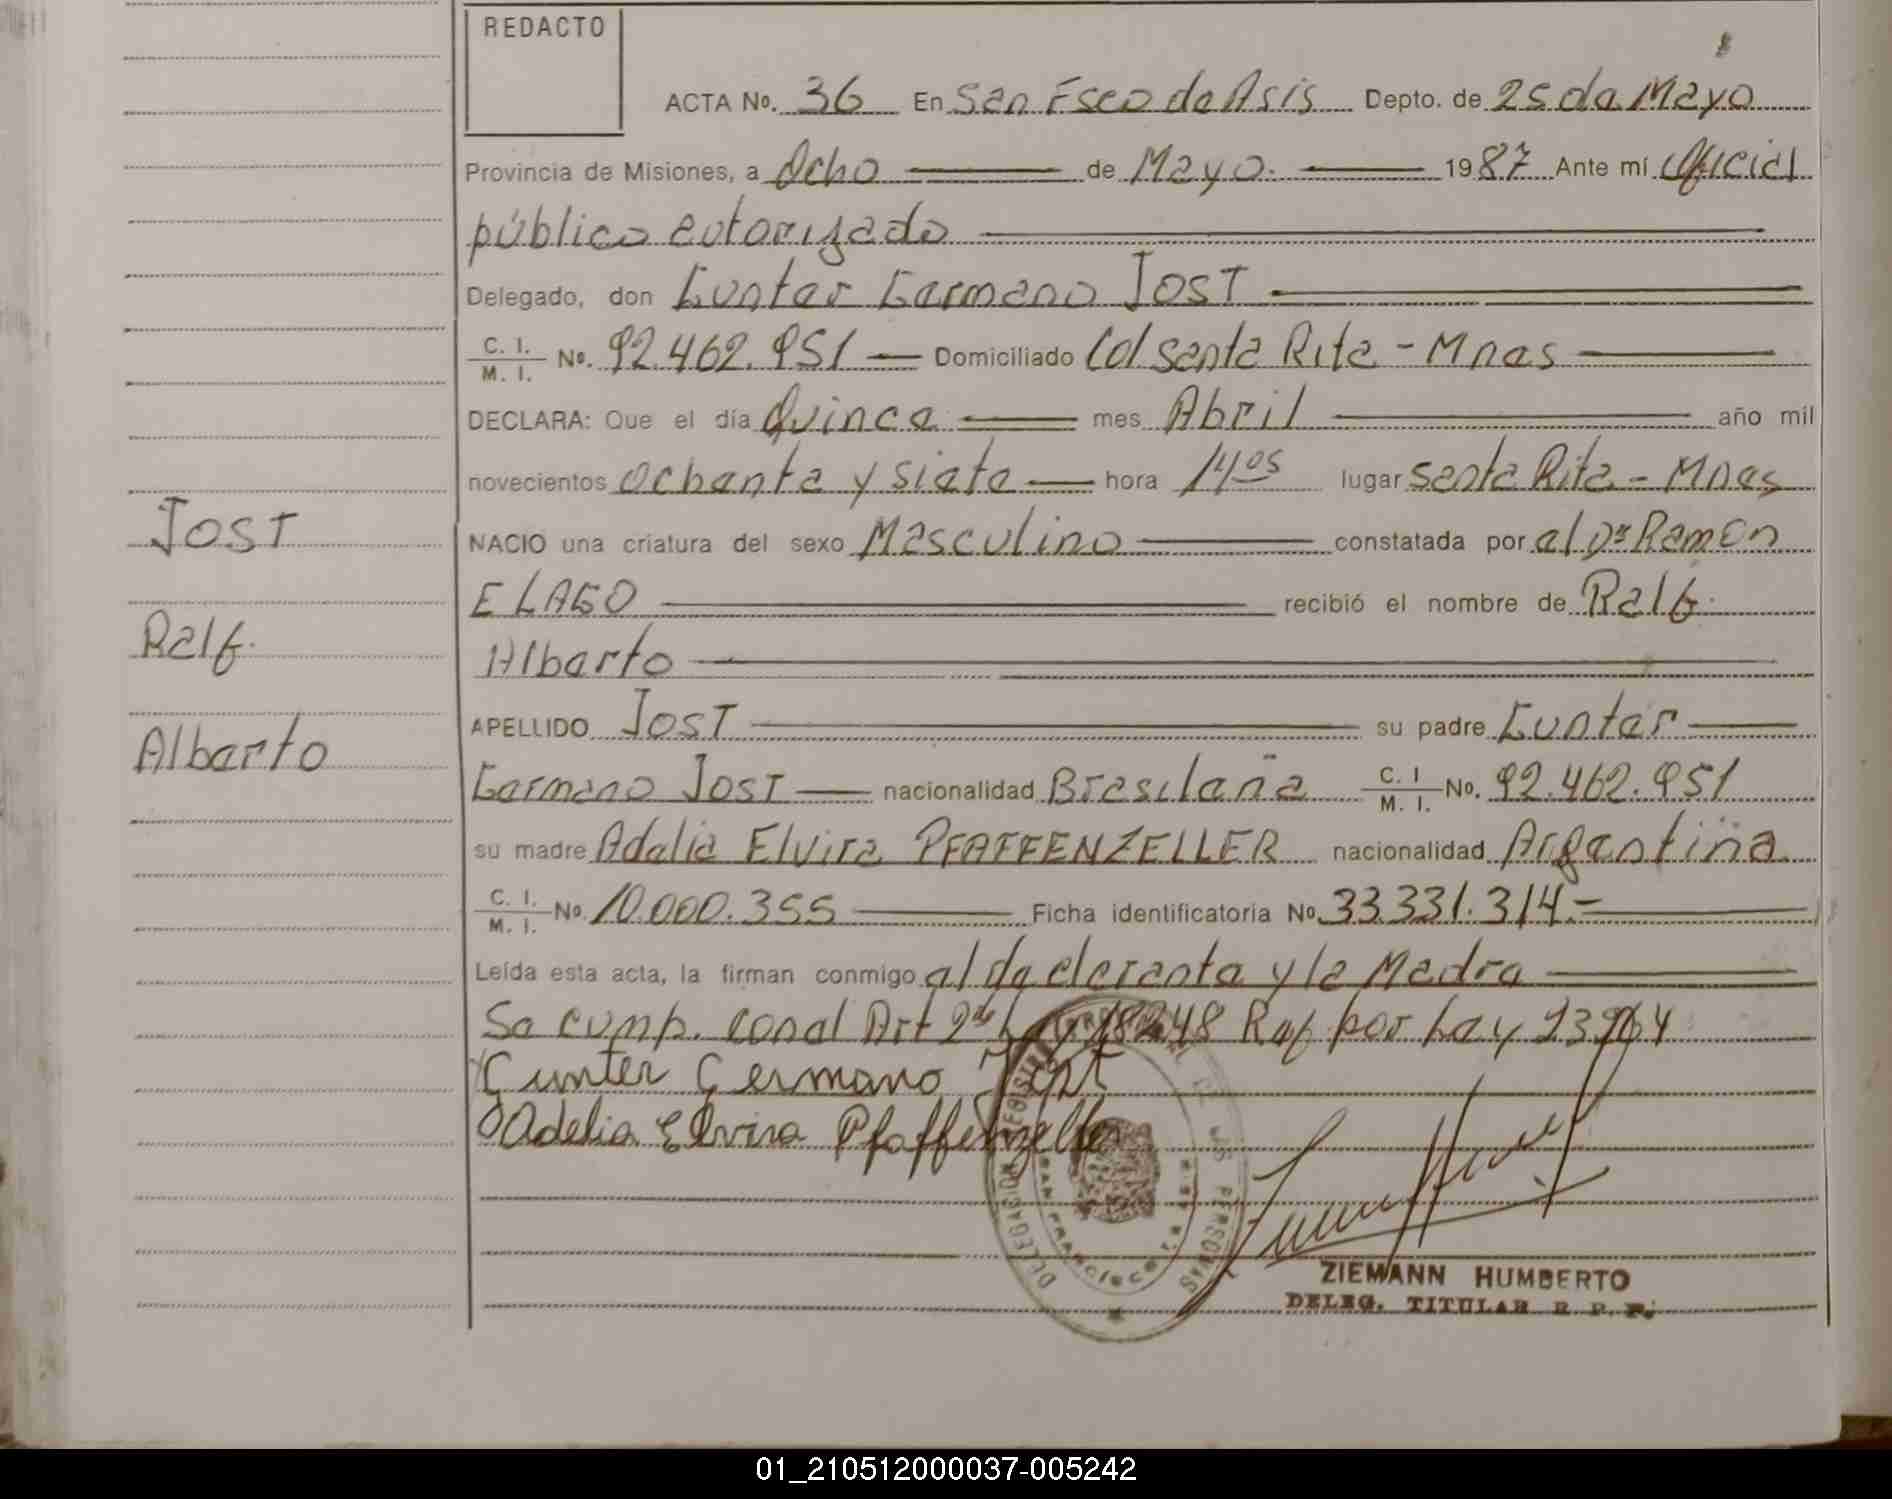 REDACTO
ACTA No. 36 En San Fsco de Asis Depto. de 25 de Mayo
Provincia de Misiones, a Ocho de Mayo. 1987 Ante mí Oficial
público autorizado
Delegado, don Gunter Germano JOST
C. I. / M. I. No. 92.462.951 Domiciliado Col Santa Rita - Mnes
DECLARA: Que el día Quince mes Abril año mil
novecientos ochenta y siete hora 14 05 lugar Santa Rita - Mnes
JOST
NACIO una criatura del sexo Masculino constatada por el Dr Ramon
ELAGO recibió el nombre de Ralf
Ralf
Alberto
APELLIDO JOST su padre Gunter
Alberto
Germano JOST nacionalidad Brasileña C. I / M. I. No. 92.462.951
su madre Adelia Elvira PFAFFENZELLER nacionalidad Argentina
C. I. / M. I. No. 10.000.355 Ficha identificatoria No. 33.331.314.-
Leída esta acta, la firman conmigo el declarante y la Madre
Se cump. con el Art 2 Ley 18248 Ref por Ley 23264
Gunter Germano Jost
Adelia Elvira Pfaffenzeller
DELEGACION REGISTRO PROVINCIAL DE LAS PERSONAS
SAN FRANCISCO
ZIEMANN HUMBERTO
DELEG. TITULAR R. P. P.
01_210512000037-005242